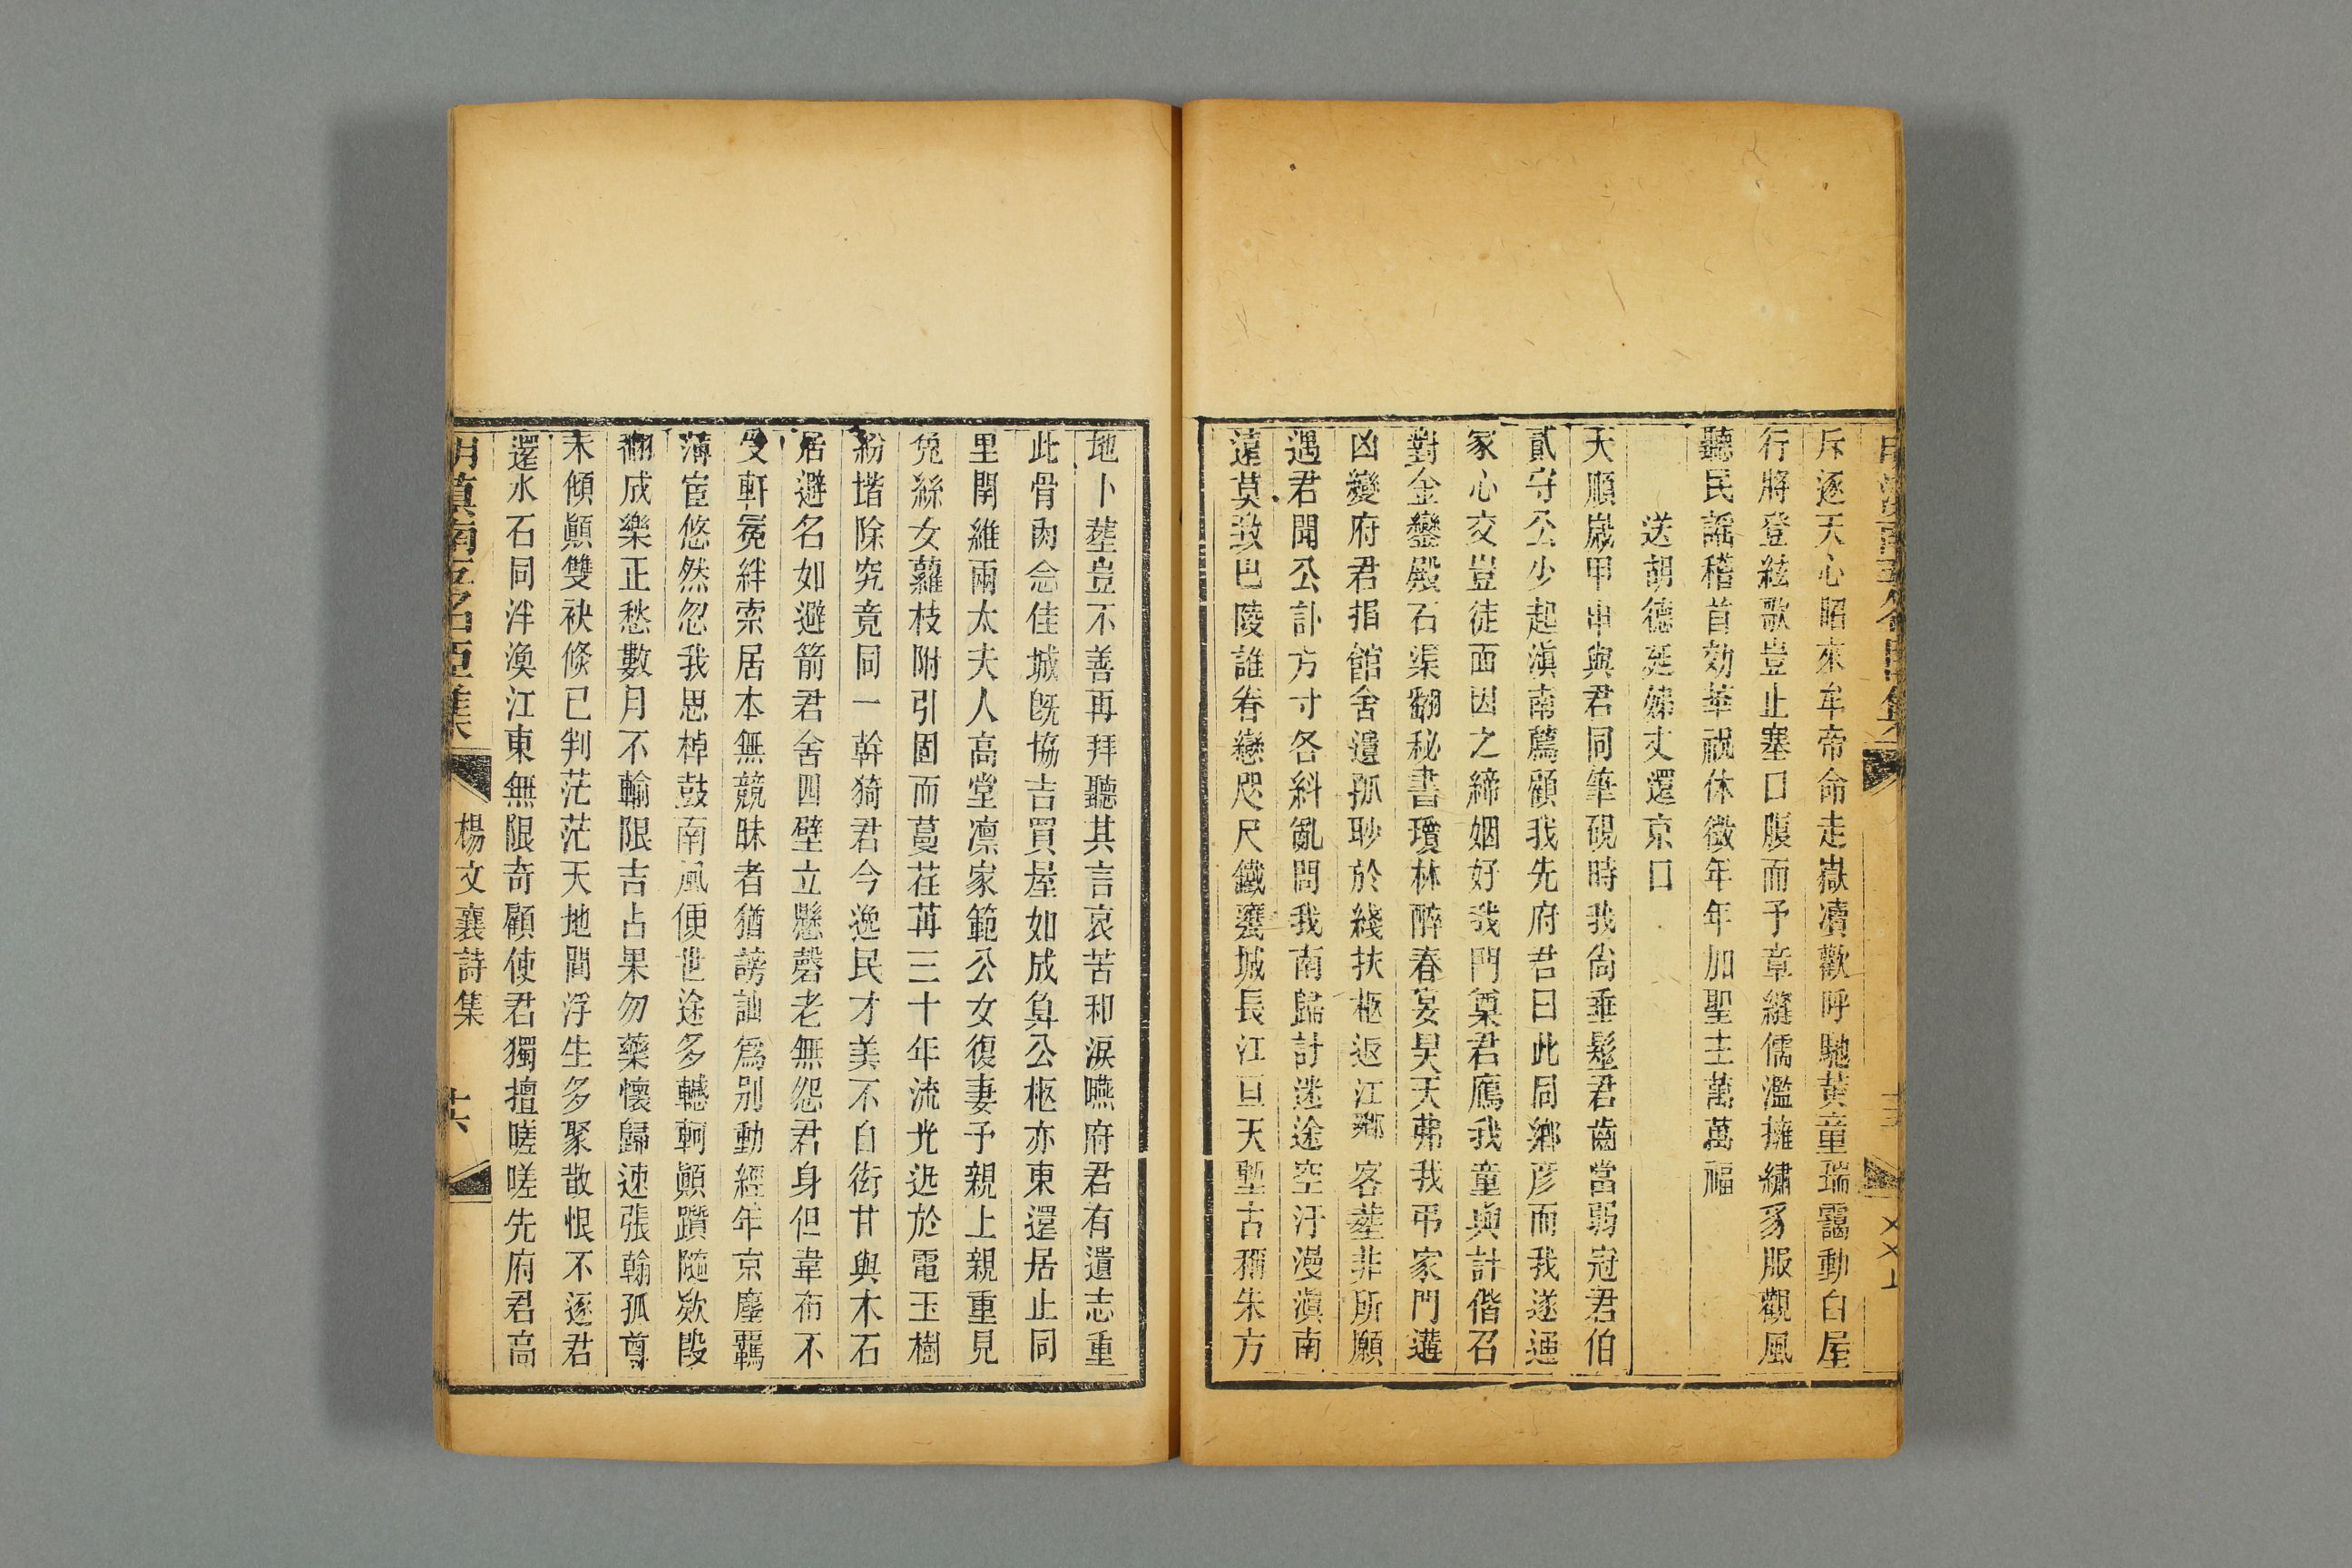 斥逐天心昭來牟帝命走嶽瀆歡呼馳黃童瑞靄動白屋
行將登絃歌豈止塞口腹而予章縫儒濫擁繡豸服觀風
聽民謠稽首効華祝休徵年年加聖主萬萬福
送胡德延姊丈還京口
天順歲甲申與君同筆硯時我尙垂髫君齒當弱冠君伯
貳守公少起滇南薦顧我先府君曰此同鄉彦而我遂通
家心交豈徒面因之締姻好我門奠君鴈我童與計偕召
對金鑾殿石渠翻秘書瓊林醉春宴昊天弗我弔家門遘
凶變府君捐館舍遺孤眇於綫扶柩返江鄉客塟非所願
遇君聞公訃方寸各糾亂問我南歸計迷途空汗漫滇南
遠莫致巴陵誰眷戀咫尺鐵甕城長江亘天塹古稱朱方
地卜塟豈不善再拜聽其言哀苦和淚嚥府君有遺志重
此骨肉念佳城旣協吉買屋如成算公柩亦東還居止同
里閈維兩太夫人高堂凛家範公女復妻予親上親重見
兔絲女蘿枝附引固而蔓荏苒三十年流光迅於電玉樹
紛堦除究竟同一幹猗君今逸民才美不自衒甘與木石
居避名如避箭君舍四壁立懸磬老無怨君身但韋布不
受軒冕絆索居本無競昧者猶謗訕爲别動經年京塵羈
薄宦悠然忽我思棹鼓南風便世途多轗軻顛躓隨欵段
翻成樂正愁數月不輸限吉占果勿藥懷歸速張翰孤尊
未傾顛雙袂倐已判茫茫天地間浮生多聚散恨不逐君
還水石同泮渙江東無限奇顧使君獨擅嗟嗟先府君高
明滇南五名臣集
楊文襄詩集
十六